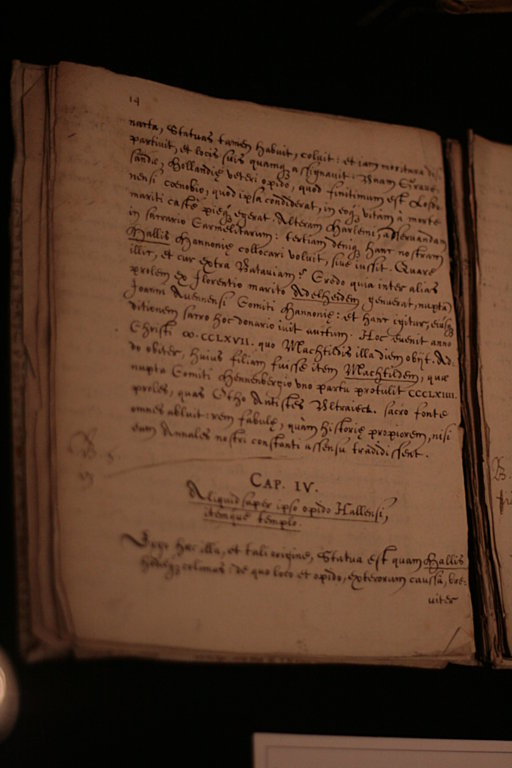 14
narta, Statuas tamen habuit, coluit: et iam moritura di-
partiuit, et locis suis quamq; assignauit: Vnam Grauę-
sandę, Hollandię veteri opido, quod finitimum est Losdu-
nensi cœnobio, quod ipsa condiderat, in eoq; vitam à morte
mariti castè pieq; egerat. Alteram Harlemi, asseruandam
in sacrario Carmelitarum: tertiam deniq; hanc nostram
Hallis Hannonię collocari voluit, siue iussit. Quare
illic, et cur extra Batauiam? Credo quia inter alias
prolem ex Florentio marito Adelheidem genuerat, nupta
Ioanni Auennensi Comiti Hannonię: et hanc igitur, eiusq;
ditionem sacro hoc donario iuit auctum. Hoc euenit anno
Christi ∞.CCLXVII. quo Machtildis illa diem obijt. Ad-
do obiter, huius filiam fuisse item Machtildem, quæ
nupta Comiti Hennenbergio vno partu protulit CCCLXIIII.
proles, quas Otho Antistes Vltraiect. sacro fonte
omnes abluit: rem fabulę, quàm historię propiorem, nisi
eam Annales nostri constanti assensu tradidissent.
CAP. IV.
Aliquid super ipso opido Hallensi,
itemque templo.
Ergo hæc illa, et tali origine, Statua est quam Hallis
hodieq; colimus: de quo loco et opido, exterorum caussâ, bre-
uiter
B.